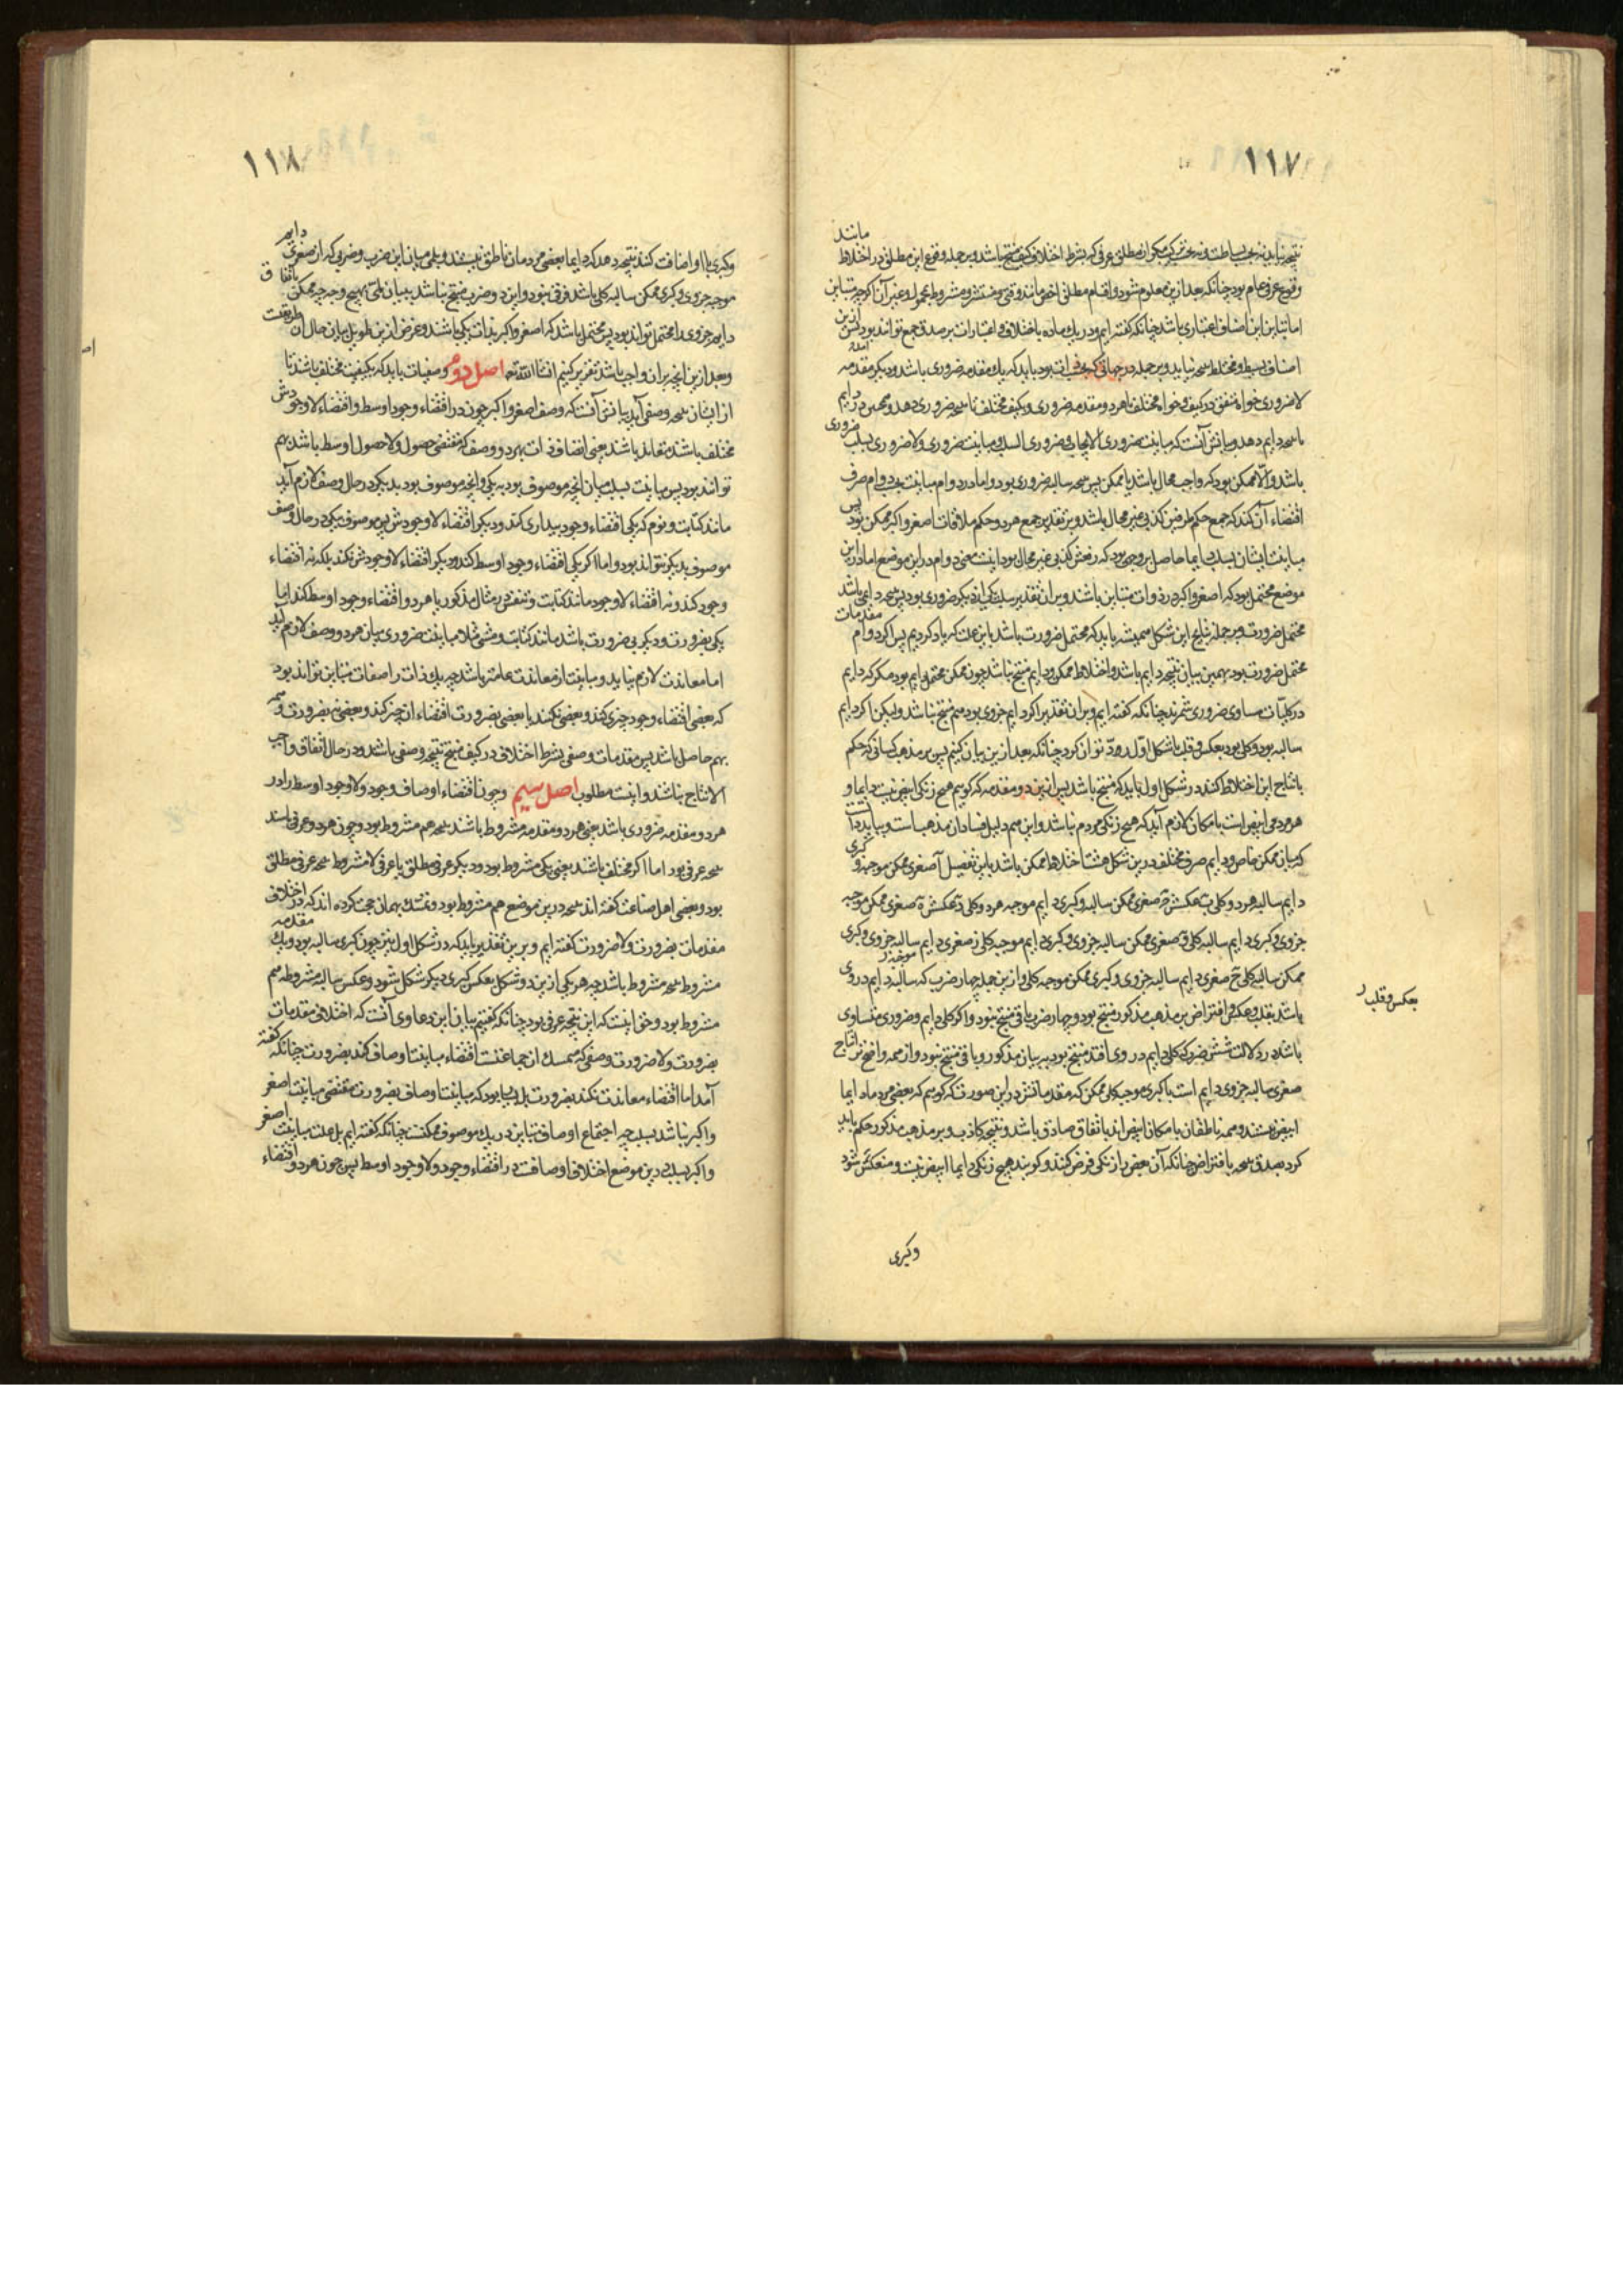 ١١٧
مانند
نتیجه نیاید نه بحسب بساطت و نه بحسب ترکیب مکر از مطلق عرفی که بشرط اختلاف کیف منتج باشد و بر جمله وقوع این مطلق در اختلاط
وقوع عرفی عام بود چنانکه بعد ازین معلوم شود و اقسام مطلق اخص مانند وقتی و منتشر و مشروط بمحمول و غیر آن اکرچه متباین
اما تباین این اصناف اعتباری باشد چنانکه کفته ایم و در یك ماده باختلاف اعتبارات بر صدق جمع تواند بود پس ازین
اصناف بسیط و مختلط نتیجه نیاید و بر جمله در جهاتی که بحسب ذات بود باید که یك مقدمه ضروری باشد و دیکر مقدمه
لاضروری خواه متفق در کیف و خواه مختلف یا هر دو مقدمه ضروری و بکیف مختلف تا نتیجه ضروری دهد و همچنین در دایم
تا نتیجه دایم دهد و بیانش آنست که مباینت ضروری الایجاب و ضروری السلب و مباینت ضروری و لاضروری بسلب ضروری
باشد و الا ممکن بود که واجب محال باشد یا ممکن پس نتیجه سالبه ضروری بود و اما در دوام مباینت بحسب دوام صرف
اقتضاء آن کند که جمع حکم طرفین کذبی غیر محال باشد و بر تقدیر جمع هر دو حکم ملاقات اصغر و اکبر ممکن بود پس
مباینت ایشان بسلب دایما حاصل بر وجهی بود که رفعش کذبی غیر محال بود اینست معنی دوام در این موضع اما در این
موضع محتمل بود که اصغر و اکبر در ذوات متباین باشند و بر ان تقدیر سلب یکی از دیکر ضروری بود پس نتیجه دایمی باشد
محتمل ضرورت و بر جمله نتایج این شکل همیشه باید که محتمل ضرورت باشد باین علت که یاد کردیم پس اکر دوام مقدمات
محتمل ضرورت بود بهمین بیان نتیجه دایم باشد و اختلاط ممکن و دایم منتج نباشد چون ممکن محتمل دایم بود مکر که دایم
در کلیات مساوی ضروری شمرند چنانکه کفته ایم و بر ان تقدیر اکر دایم جزوی بود هم منتج نباشد و لیکن اکر دایم
سالبه بود و کلی بود بعکس و قلب با شکل اول رد توان کرد چنانکه بعد ازین بیان کنیم پس بر مذهب کسانی که حکم
بانتاج این اختلاط کنند در شکل اول باید که منتج باشد پس ازین دو مقدمه که کوییم هیچ زنکی ابیض نیست دایما و
هر مردمی ابیض است بامکان لازم آید که هیچ زنکی مردم نباشد و این هم دلیل فساد آن مذهب است و بباید دانست
که میان ممکن خاص و دایم صرف مختلف درین شکل هشت اختلاط ممکن باشد باین تفصیل آ صغری ممکن موجبه و کبری
دایم سالبه هر دو کلی ب عکسش ج صغری ممکن سالبه و کبری دایم موجبه هر دو کلی د عکسش ه صغری ممکن موجبه
جزوی و کبری دایم سالبه کلی و صغری ممکن سالبه جزوی و کبری دایم موجبه کلی ز صغری دایم سالبه جزوی و کبری
ممکن موجبه کلی ح صغری دایم موجبه جزوی و کبری ممکن سالبه کلی و ازین جمله چهار ضرب که سالبه دایم در وی
بعکس و قلب
باشد بقلب و عکس و افتراض بر مذهب مذکور منتج بود و چهار ضرب باقی منتج نبود و اکر کلی دایم و ضروری متساوی
باشد در دلالت شش ضرب که کلی دایم در وی افتد منتج بود به بیان مذکور و باقی منتج نبود و از همه واضح تر انتاج
صغری سالبه جزوی دایم است با کبری موجبه کلی ممکن که مقدماتش در این صورت که کوییم که بعضی مردم دایما
ابیض نیستند و همه ناطقان بامکان ابیض اند باتفاق صادق باشد و نتیجه کاذب و بر مذهب مذکور حکم باید
کرد بصدق نتیجه بافتراض چنانکه آن بعض را زنکی فرض کنند و کویند هیچ زنکی دایما ابیض نیست و منعکس شود
وکبری
١١٨
وکبری با او اضافت کنند نتیجه دهد که دایما بعضی مردمان ناطق نیستند و بلی میان این ضرب و ضربی که از صغری دایم
موجبه جزوی و کبری ممکن سالبه کلی باشد فرق نبود و این دو ضرب منتج نباشد ببیان لمی بهیچ وجه چه ممکن باتفاق
دایم جزوی را محتمل تواند بود پس محتمل باشد که اصغر و اکبر بذات یکی باشند و غرض ازین طویل بیان حال آن طریقت
و بعد ازین انچه بران واجب باشد تقریر کنیم انشا الله تعا اصل دوم وصفیات باید که بکیفیت مختلف باشند تا
از ایشان نتیجه وصفی آید بیانش آنست که وصف اصغر و اکبر چون در اقتضاء وجود اوسط و اقتضاء لاوجودش
مختلف باشند متعاند باشند یعنی اتصاف ذات بهر دو وصف که مقتضی حصول و لاحصول اوسط باشد بهم
نتوانند بود پس مباینت بسلب میان انچه موصوف بود به یکی و انچه موصوف بود بدیکر در حال وصف لازم آید
مانند کتابت و نوم که یکی اقتضاء وجود بیداری کند و دیکر اقتضاء لاوجودش پس موصوف بیکی در حال وصف
موصوف بدیکر نتواند بود و اما اکر یکی اقتضاء وجود اوسط کند و دیکر اقتضاء لاوجودش نکند بلکه نه اقتضاء
وجود کند و نه اقتضاء لاوجود مانند کتابت و تنفس در مثال مذکور یا هر دو اقتضاء وجود اوسط کند اما
یکی بضرورت و دیکر بی ضرورت باشد مانند کتابت و مشی مثلا مباینت ضروری میان هر دو وصف لازم آید
اما معاندت لازم نیاید و مباینت از معاندت عامتر باشد چه یك ذات را صفات متباین تواند بود
که بعضی اقتضاء وجود چیزی کند و بعضی نکند یا بعضی بضرورت اقتضاء ان چیز کند و بعضی نه بضرورت و همه
بهم حاصل باشد پس مقدمات وصفی بشرط اختلاف در کیف منتج نتیجه وصفی باشد و در حال اتفاق واجب
الانتاج نباشد و اینست مطلوب اصل سیم و چون اقتضاء اوصاف وجود و لاوجود اوسط را در
هر دو مقدمه ضروری باشد یعنی هر دو مقدمه مشروط باشند نتیجه هم مشروط بود و چون هر دو عرفی باشند
نتیجه عرفی بود اما اکر مختلف باشند یعنی یکی مشروط بود و دیکر عرفی مطلق یا عرفی لامشروط نتیجه عرفی مطلق
بود و بعضی اهل صناعت کفته اند نتیجه درین موضع هم مشروط بود و تمسك بهمان حجت کرده اند که در اختلاف
مقدمات بضرورت و لاضرورت کفته ایم و برین تقدیر باید که در شکل اول نیز چون کبری سالبه بود و یك مقدمه
مشروط نتیجه مشروط باشد چه هر یکی ازین دو شکل بعکس کبری دیکر شکل شود و عکس سالبه مشروطه هم
مشروط بود و حق اینست که این نتیجه عرفی بود چنانکه کفتیم بیان این دعاوی آنست که اختلاف مقدمات
بضرورت و لاضرورت وصفی که متمسك ان جماعتست اقتضاء مباینت اوصاف کند بضرورت چنانکه کفته
آمد اما اقتضاء معاندت نکند بضرورت بل بسا بود که مباینت اوصاف بضرورت مقتضی مباینت اصغر
واکبر نباشد بسلب چه اجتماع اوصاف متباین در یك موصوف ممکنست چنانکه کفته ایم بل علت مباینت اصغر
واکبر بسلب درین موضع اختلاف اوصافست در اقتضاء وجود و لاوجود اوسط پس چون هر دو اقتضاء